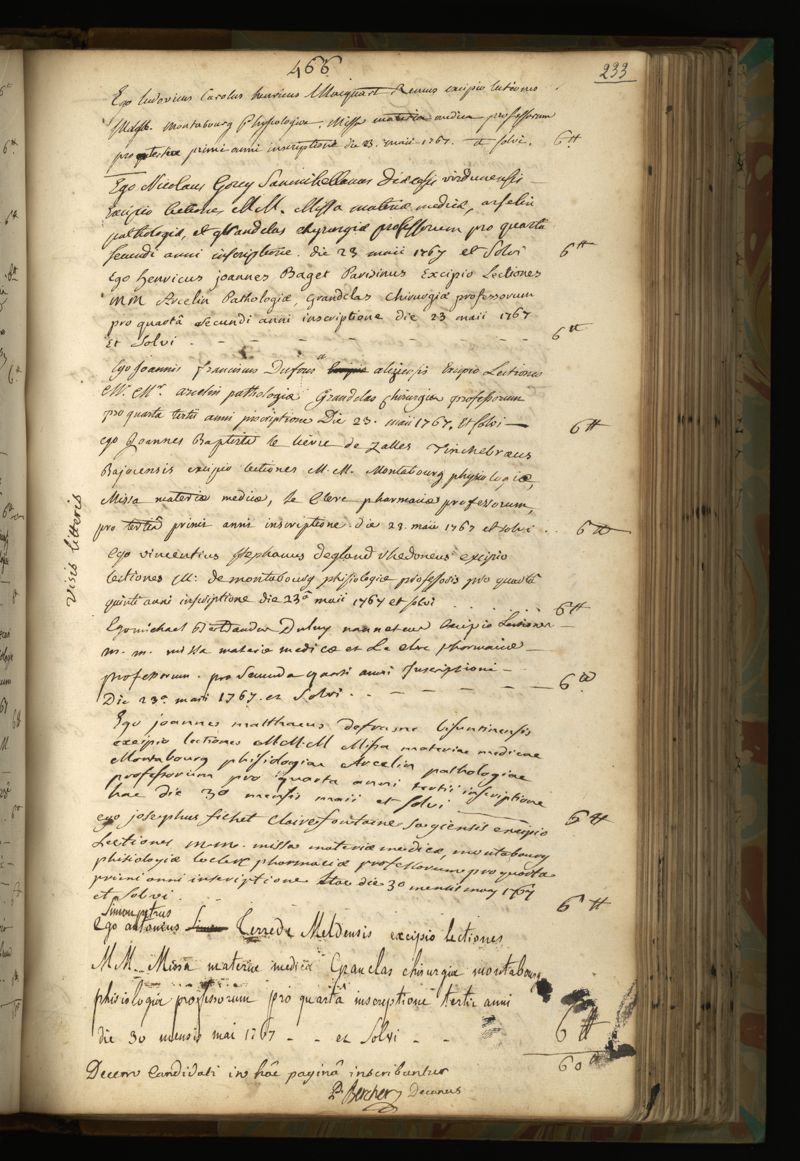 466
233
Ego Ludovicus Carolus henricus Macquart Remus excipio lectiones
Montabourg Physiologiae, Missa materiae medicae professorum
pro primi anni inscriptione die 23. maii 1767. et solvi. 6tt
Ego Nicolaus Gorcy Sammihellanus Diœcesis virdunensis
Excipio lectiones MM. Missa materiæ medicæ, arselin
pathologiæ, et grandclas chyrurgiæ professorum pro quarta
secundi anni inscriptione. die 23 maii 1767 et Solvi 6tt
Ego henricus joannes Baget Parisinus Excipio Lectiones
MM Arcelin Pathologiæ, Grandclas Chirurgiæ professorum
pro quartâ Secundi anni inscriptione die 23 maii 1767
Et Solvi - - - - - - - - 6tt
Ego Joannis franciscus Dufour Excipio Lectiones
Mr. Mr. arcelin pathologiæ Grandclas chirurgiæ professorum
pro quarta tertii anni inscriptione Die 23. maii 1767. et solvi — 6tt
ego Joannes Baptista le lièvre de Zalles Tinchebræus
Bajocensis excipio lectiones M. M. Montabourg physiologiæ,
Missa materiæ medicæ, le Clerc pharmaciæ professorum,
pro tertiâ primi anni inscriptione die 23. maii 1767 et solvi .. 6tt
visis litteris
Ego vincentius stephanus degland rhedoneus excipio
lectiones M. de montabourg phisiologiæ professoris pro quartâ
quinti anni inscriptione die 23a maii 1767 et solvi . . . . . 6tt
Ego michael Duluy nanneteus Excipio Lectiones
m. m. missa materiæ medicæ et Le clerc pharmaciæ —
professorum. pro Secunda quarti anni Inscriptione —
Die 23a maii 1767. et Solvi . . - - - - - 6tt
Ego joannes matthaeus defrasne bisuntinensis
excipio lectiones MM. M Missa materiae medicae
Montabourg phisiologiae Arcelin pathologiae
professorum pro quarta anni tertii inscriptione
hac die 30 mensis maii et solvi — 6tt
ego josephus fichet clairefontaine Sagiensis excipio
Lectiones m.m. missa materiæ medicæ, montabourg
phisiologiæ leclerc pharmaciæ professorum pro quarta
primi anni inscriptione hac die 30 mensis may 1767
et solvi . . . 6tt
Simon petrus
Ego antonius Terrede Meldensis excipio lectiones
M M. Missa materiæ medicæ Granclas chirurgiæ montabourg
phisiologiæ professorum pro quartâ inscriptione tertii anni
die 30 mensis mai 1767 - - et Solvi - - 6tt
60tt
Decem Candidati in hâc paginâ inscribuntur
P. Bercher Decanus